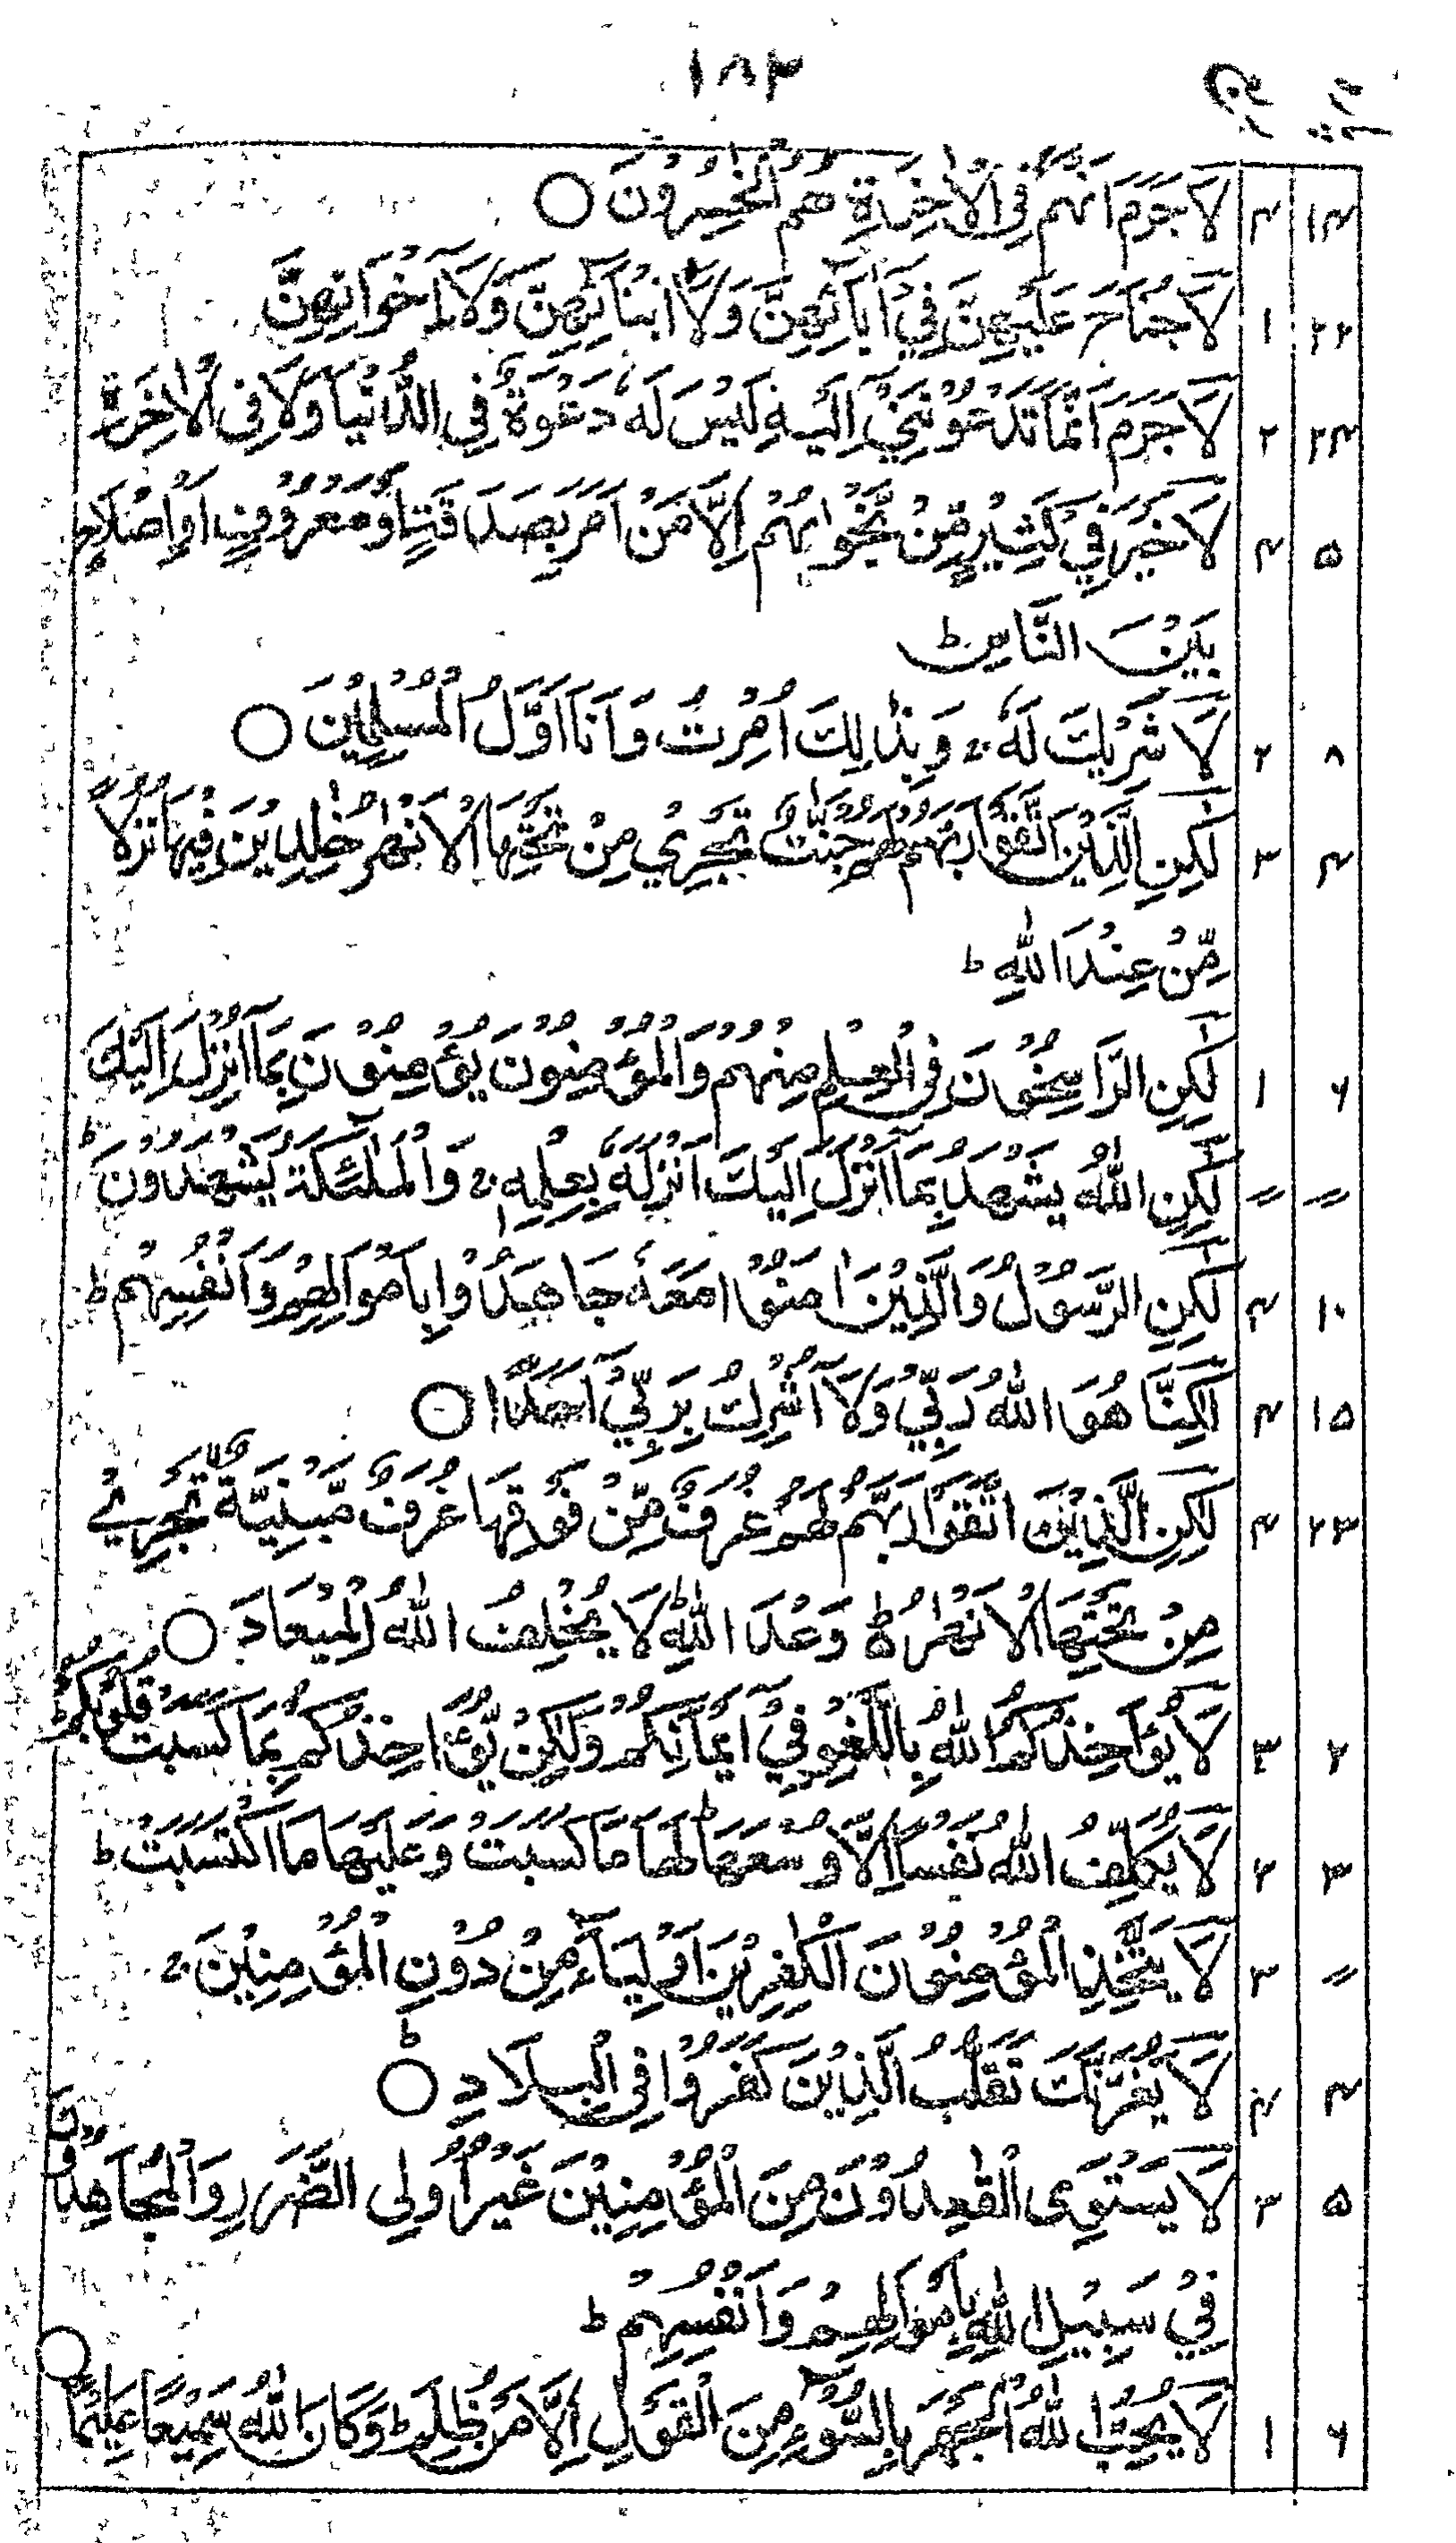 ۱۸۴
۱۴ ۴ لَاجَرَمَ اَنَّهُمْ فِی الْاٰخِرَةِ هُمُ الْخٰسِرُوْنَ ○
۲۲ ۱ لَاجُنَاحَ عَلَیْهِنَّ فِیْۤ اٰبَآئِهِنَّ وَلَاۤ اَبْنَآئِهِنَّ وَلَاۤ اِخْوَانِهِنَّ
۲۴ ۲ لَاجَرَمَ اَنَّمَا تَدْعُوْنَنِیْۤ اِلَیْهِ لَیْسَ لَهٗ دَعْوَةٌ فِی الدُّنْیَا وَلَا فِی الْاٰخِرَةِ
۵ ۴ لَاخَیْرَ فِیْ كَثِیْرٍ مِّنْ نَّجْوٰىهُمْ اِلَّا مَنْ اَمَرَ بِصَدَقَةٍ اَوْ مَعْرُوْفٍ اَوْ اِصْلَاحٍۭ
بَیْنَ النَّاسِ ؕ
۸ ۲ لَا شَرِیْكَ لَهٗ ۚ وَبِذٰالِكَ اُمِرْتُ وَاَنَا اَوَّلُ الْمُسْلِمِیْنَ ○
۴ ۳ لٰكِنِ الَّذِیْنَ اتَّقَوْا رَبَّهُمْ لَهُمْ جَنّٰتٌ تَجْرِیْ مِنْ تَحْتِهَا الْاَنْهٰرُ خٰلِدِیْنَ فِیْهَا نُزُلًا
مِّنْ عِنْدِ اللّٰهِ ؕ
۶ ۱ لٰكِنِ الرَّاسِخُوْنَ فِی الْعِلْمِ مِنْهُمْ وَالْمُؤْمِنُوْنَ یُؤْمِنُوْنَ بِمَاۤ اُنْزِلَ اِلَیْكَ
〃 〃 لٰكِنِ اللّٰهُ یَشْهَدُ بِمَاۤ اَنْزَلَ اِلَیْكَ اَنْزَلَهٗ بِعِلْمِهٖ ۚ وَالْمَلٰٓئِكَةُ یَشْهَدُوْنَ ؕ
۱۰ ۴ لٰكِنِ الرَّسُوْلُ وَالَّذِیْنَ اٰمَنُوْا مَعَهٗ جَاهَدُوْا بِاَمْوَالِهِمْ وَاَنْفُسِهِمْ ؕ
۱۵ ۴ لٰكِنَّا هُوَ اللّٰهُ رَبِّیْ وَلَاۤ اُشْرِكُ بِرَبِّیْۤ اَحَدًا ○
۲۳ ۴ لٰكِنِ الَّذِیْنَ اتَّقَوْا رَبَّهُمْ لَهُمْ غُرَفٌ مِّنْ فَوْقِهَا غُرَفٌ مَّبْنِیَّةٌ تَجْرِیْ
مِنْ تَحْتِهَا الْاَنْهٰرُ ؕ وَعْدَ اللّٰهِ ؕ لَا یُخْلِفُ اللّٰهُ الْمِیْعَادَ ○
۲ ۳ لَا یُؤَاخِذُكُمُ اللّٰهُ بِاللَّغْوِ فِیْۤ اَیْمَانِكُمْ وَلٰكِنْ یُّؤَاخِذُكُمْ بِمَا كَسَبَتْ قُلُوْبُكُمْ ؕ
۳ ۲ لَا یُكَلِّفُ اللّٰهُ نَفْسًا اِلَّا وُسْعَهَا ؕ لَهَا مَا كَسَبَتْ وَعَلَیْهَا مَا اكْتَسَبَتْ ؕ
〃 ۳ لَا یَتَّخِذِ الْمُؤْمِنُوْنَ الْكٰفِرِیْنَ اَوْلِیَآءَ مِنْ دُوْنِ الْمُؤْمِنِیْنَ ۚ
۴ ۴ لَا یَغُرَّنَّكَ تَقَلُّبُ الَّذِیْنَ كَفَرُوْا فِی الْبِلَادِ ○ؕ
۵ ۳ لَا یَسْتَوِی الْقٰعِدُوْنَ مِنَ الْمُؤْمِنِیْنَ غَیْرُ اُولِی الضَّرَرِ وَالْمُجَاهِدُوْنَ
فِیْ سَبِیْلِ اللّٰهِ بِاَمْوَالِهِمْ وَاَنْفُسِهِمْ ؕ
۶ ۱ لَا یُحِبُّ اللّٰهُ الْجَهْرَ بِالسُّوْٓءِ مِنَ الْقَوْلِ اِلَّا مَنْ ظُلِمَ ؕ وَكَانَ اللّٰهُ سَمِیْعًا عَلِیْمًا ○